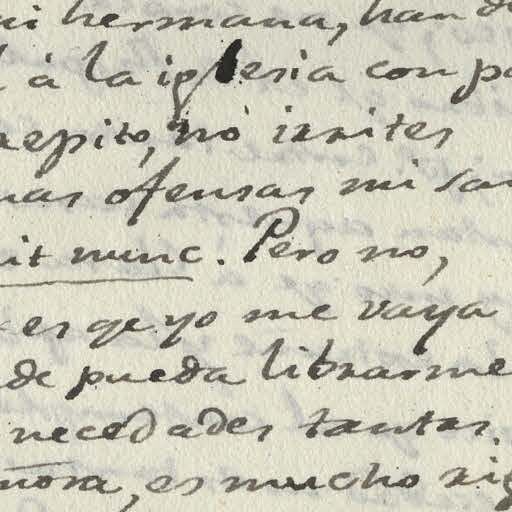 mi hermana, han d
à la iglesia con pa
repito, no irrites
mas ofensas mi san
it nunc. Pero no,
es qe. yo me vaya
de pueda librarme
necedades tantas.
nora, es mucho rig